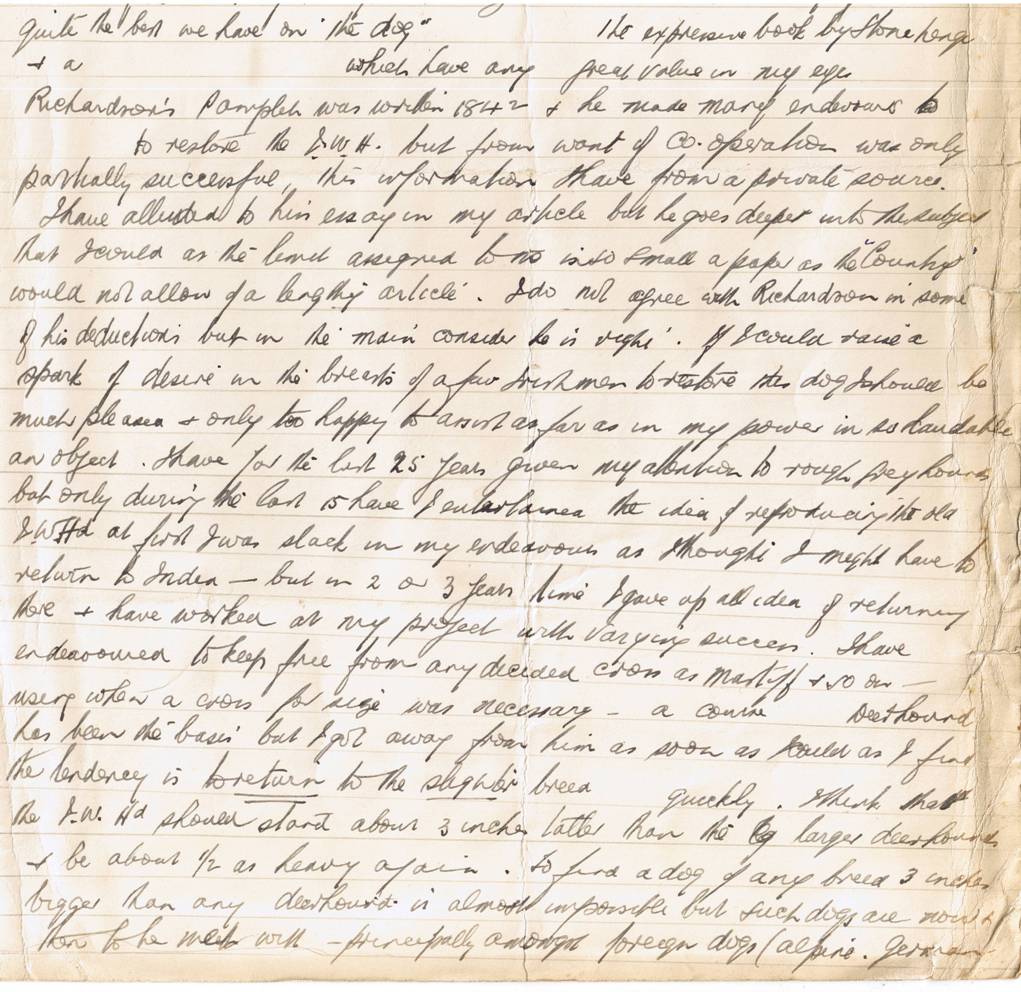 quite the best we have on "the dog" the expressive book by Stonehenge
+ a which have any great value in my eyes
Richardson's Pamplet was written 1842 + he made many endevours to
to restore the I.W.H. but from want of Co.operation was only
partially successful, this information I have from a private source.
I have alluded to his essay in my article but he goes deeper into the subject
that I could as the limit assigned to no in so small a paper as the "Country"
would not allow of a lengthy article. I do not agree with Richardson in some
of his deductions but in the main consider he is right. If I could raise a
spark of desire in the breasts of a few Irishmen to restore this dog I should be
much pleased + only too happy to assist as far as in my power in so laudable
an object. I have for the last 25 years given my attention to rough greyhounds
but only during the last 15 have I entertained the idea of reproducing the old
I.W.Hd at first I was slack in my endeavours as I thought I might have to
return to India — but in 2 or 3 years time I gave up all idea of returning
there + have worked at my project with varying success. I have
endeavoured to keep free from any decided cross as mastiff + so on —
using when a cross for size was necessary — a course Deerhound
has been the basis but I got away from him as soon as I could as I find
the tendency is to return to the slighter breed quickly. I think that
the I.W. Hd should stand about 3 inches taller than the larger deerhounds
+ be about 1/2 as heavy again. To find a dog of any breed 3 inches
bigger than any deerhound is almost impossible but such dogs are now +
then to be meet with — principally amongst foreign dogs (alpine. German